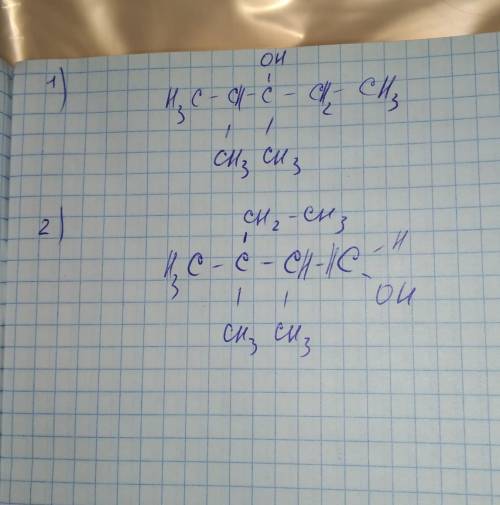 OH
1) H₃C - CH - C - CH₂ - CH₃
CH₃ CH₃
CH₂ - CH₃
2) H₃C - C - CH - HC - H
OH
CH₃ CH₃